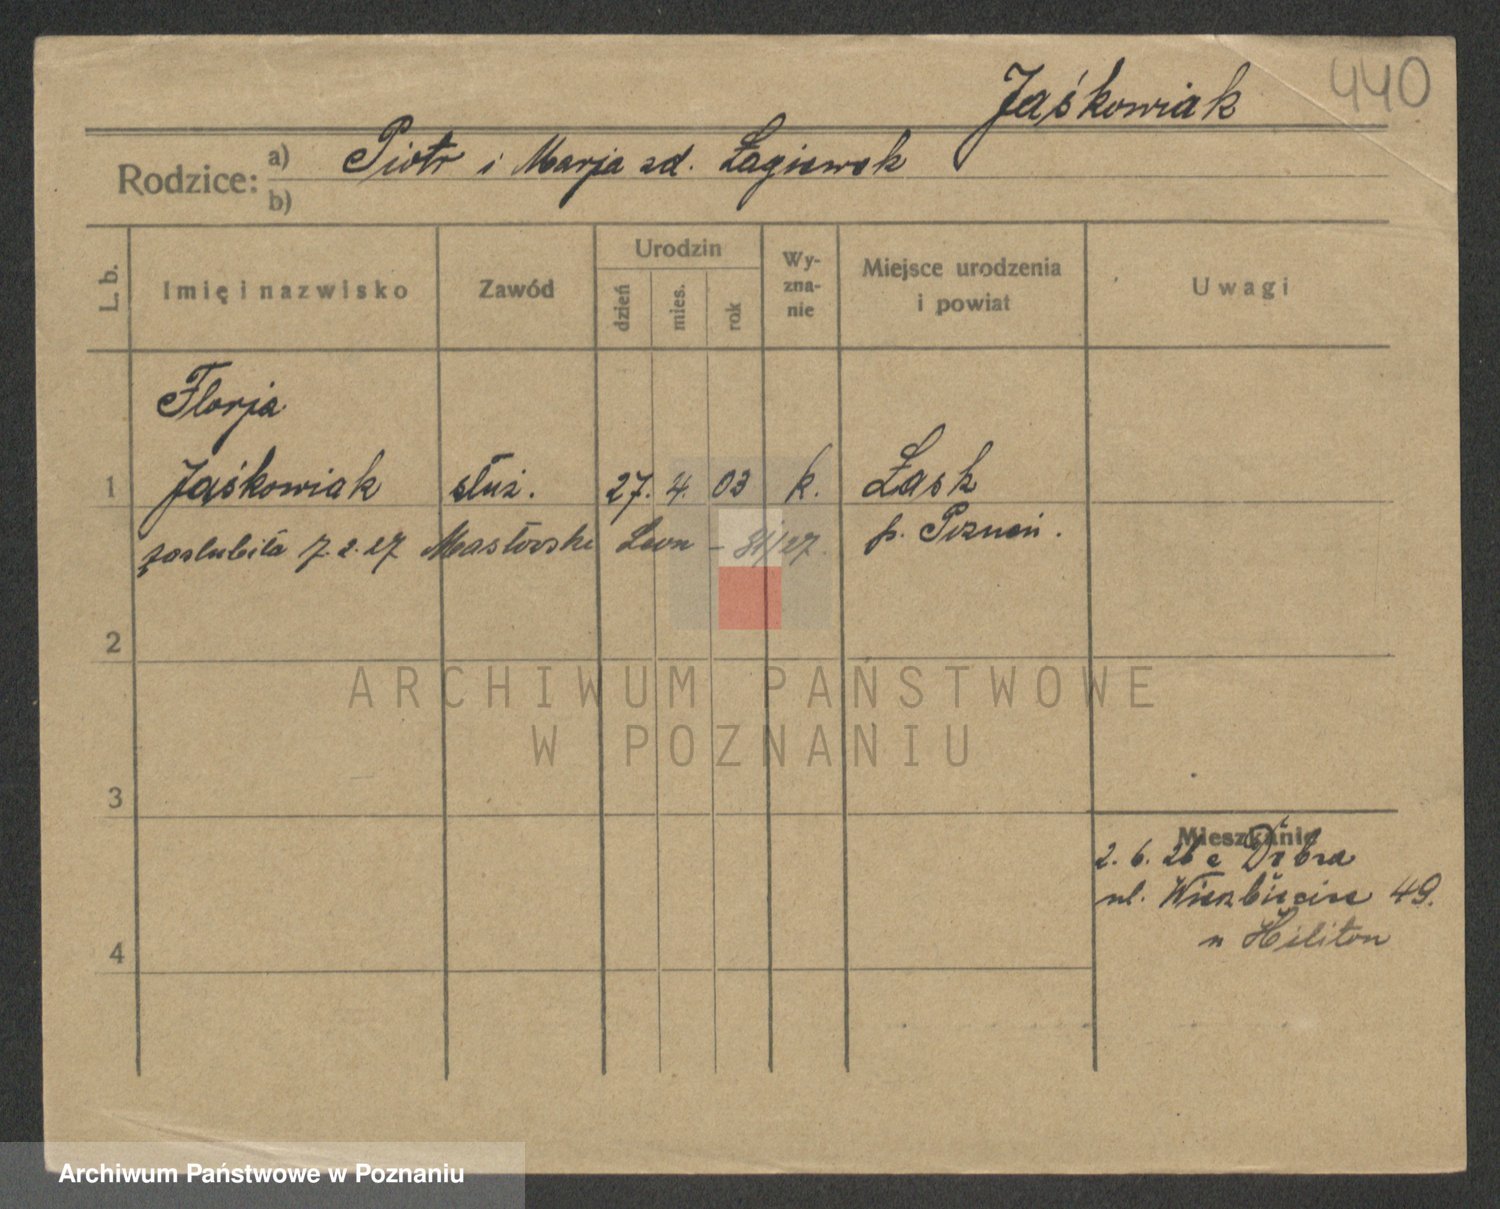 440
Jaśkowiak
Rodzice: a) Piotr i Marja zd. Łagiewek
b)
L. b.
Imię i nazwisko
Zawód
Urodzin
dzień
mies.
rok
Wy-
zna-
nie
Miejsce urodzenia
i powiat
Uwagi
Florja
1 Jaśkowiak służ. 27. 4. 03 k. Łask
p. Poznań.
zaślubiła 7.2.27 Leon
2
3
4
Mieszkanie
2. 6. 26 z
ul. Wierzbięcice 49.
ARCHIWUM PAŃSTWOWE
W POZNANIU
Archiwum Państwowe w Poznaniu